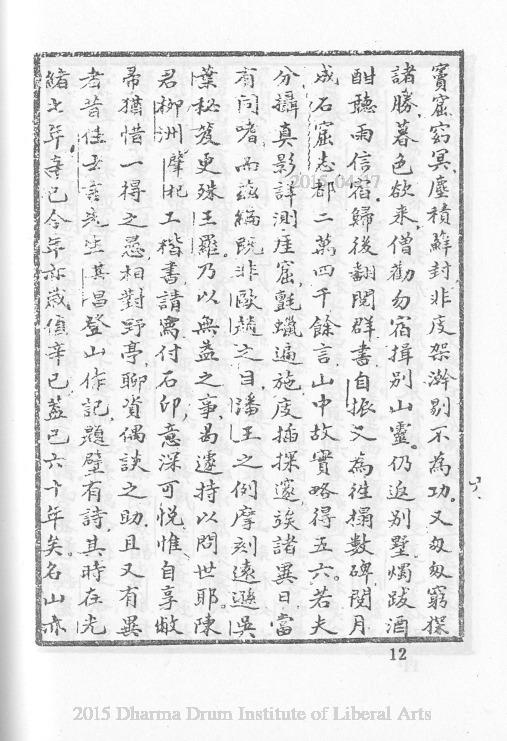 竇窟窈冥塵積蘚封非度架澣剔不為功又匆匆窮探
諸勝暮色欲來僧勸勿宿揖別山靈仍返別墅燭跋酒
酣聽雨信宿歸後翻閱群書自振又為徃搨數碑閱月
成石窟志都二萬四千餘言山中故實略得五六若夫
分攝真影詳測厓窟氈蠟遍施度插探邃竢諸異日當
有同嗜而茲編既非歐趙之目潘王之例摩刻遠遜吳
葉秘笈更殊王羅乃以無益之事曷遽持以問世耶陳
君柳洲摩挹工楷書請寫付石印意深可悅惟自享敝
帚猶惜一得之愚相對野亭聊資偶談之助且又有異
者昔佳士先生其昌登山作記題壁有詩其時在光
緒七年辛巳今年亦歲値辛巳蓋已六十年矣名山亦
12
2015-04-17
2015 Dharma Drum Institute of Liberal Arts